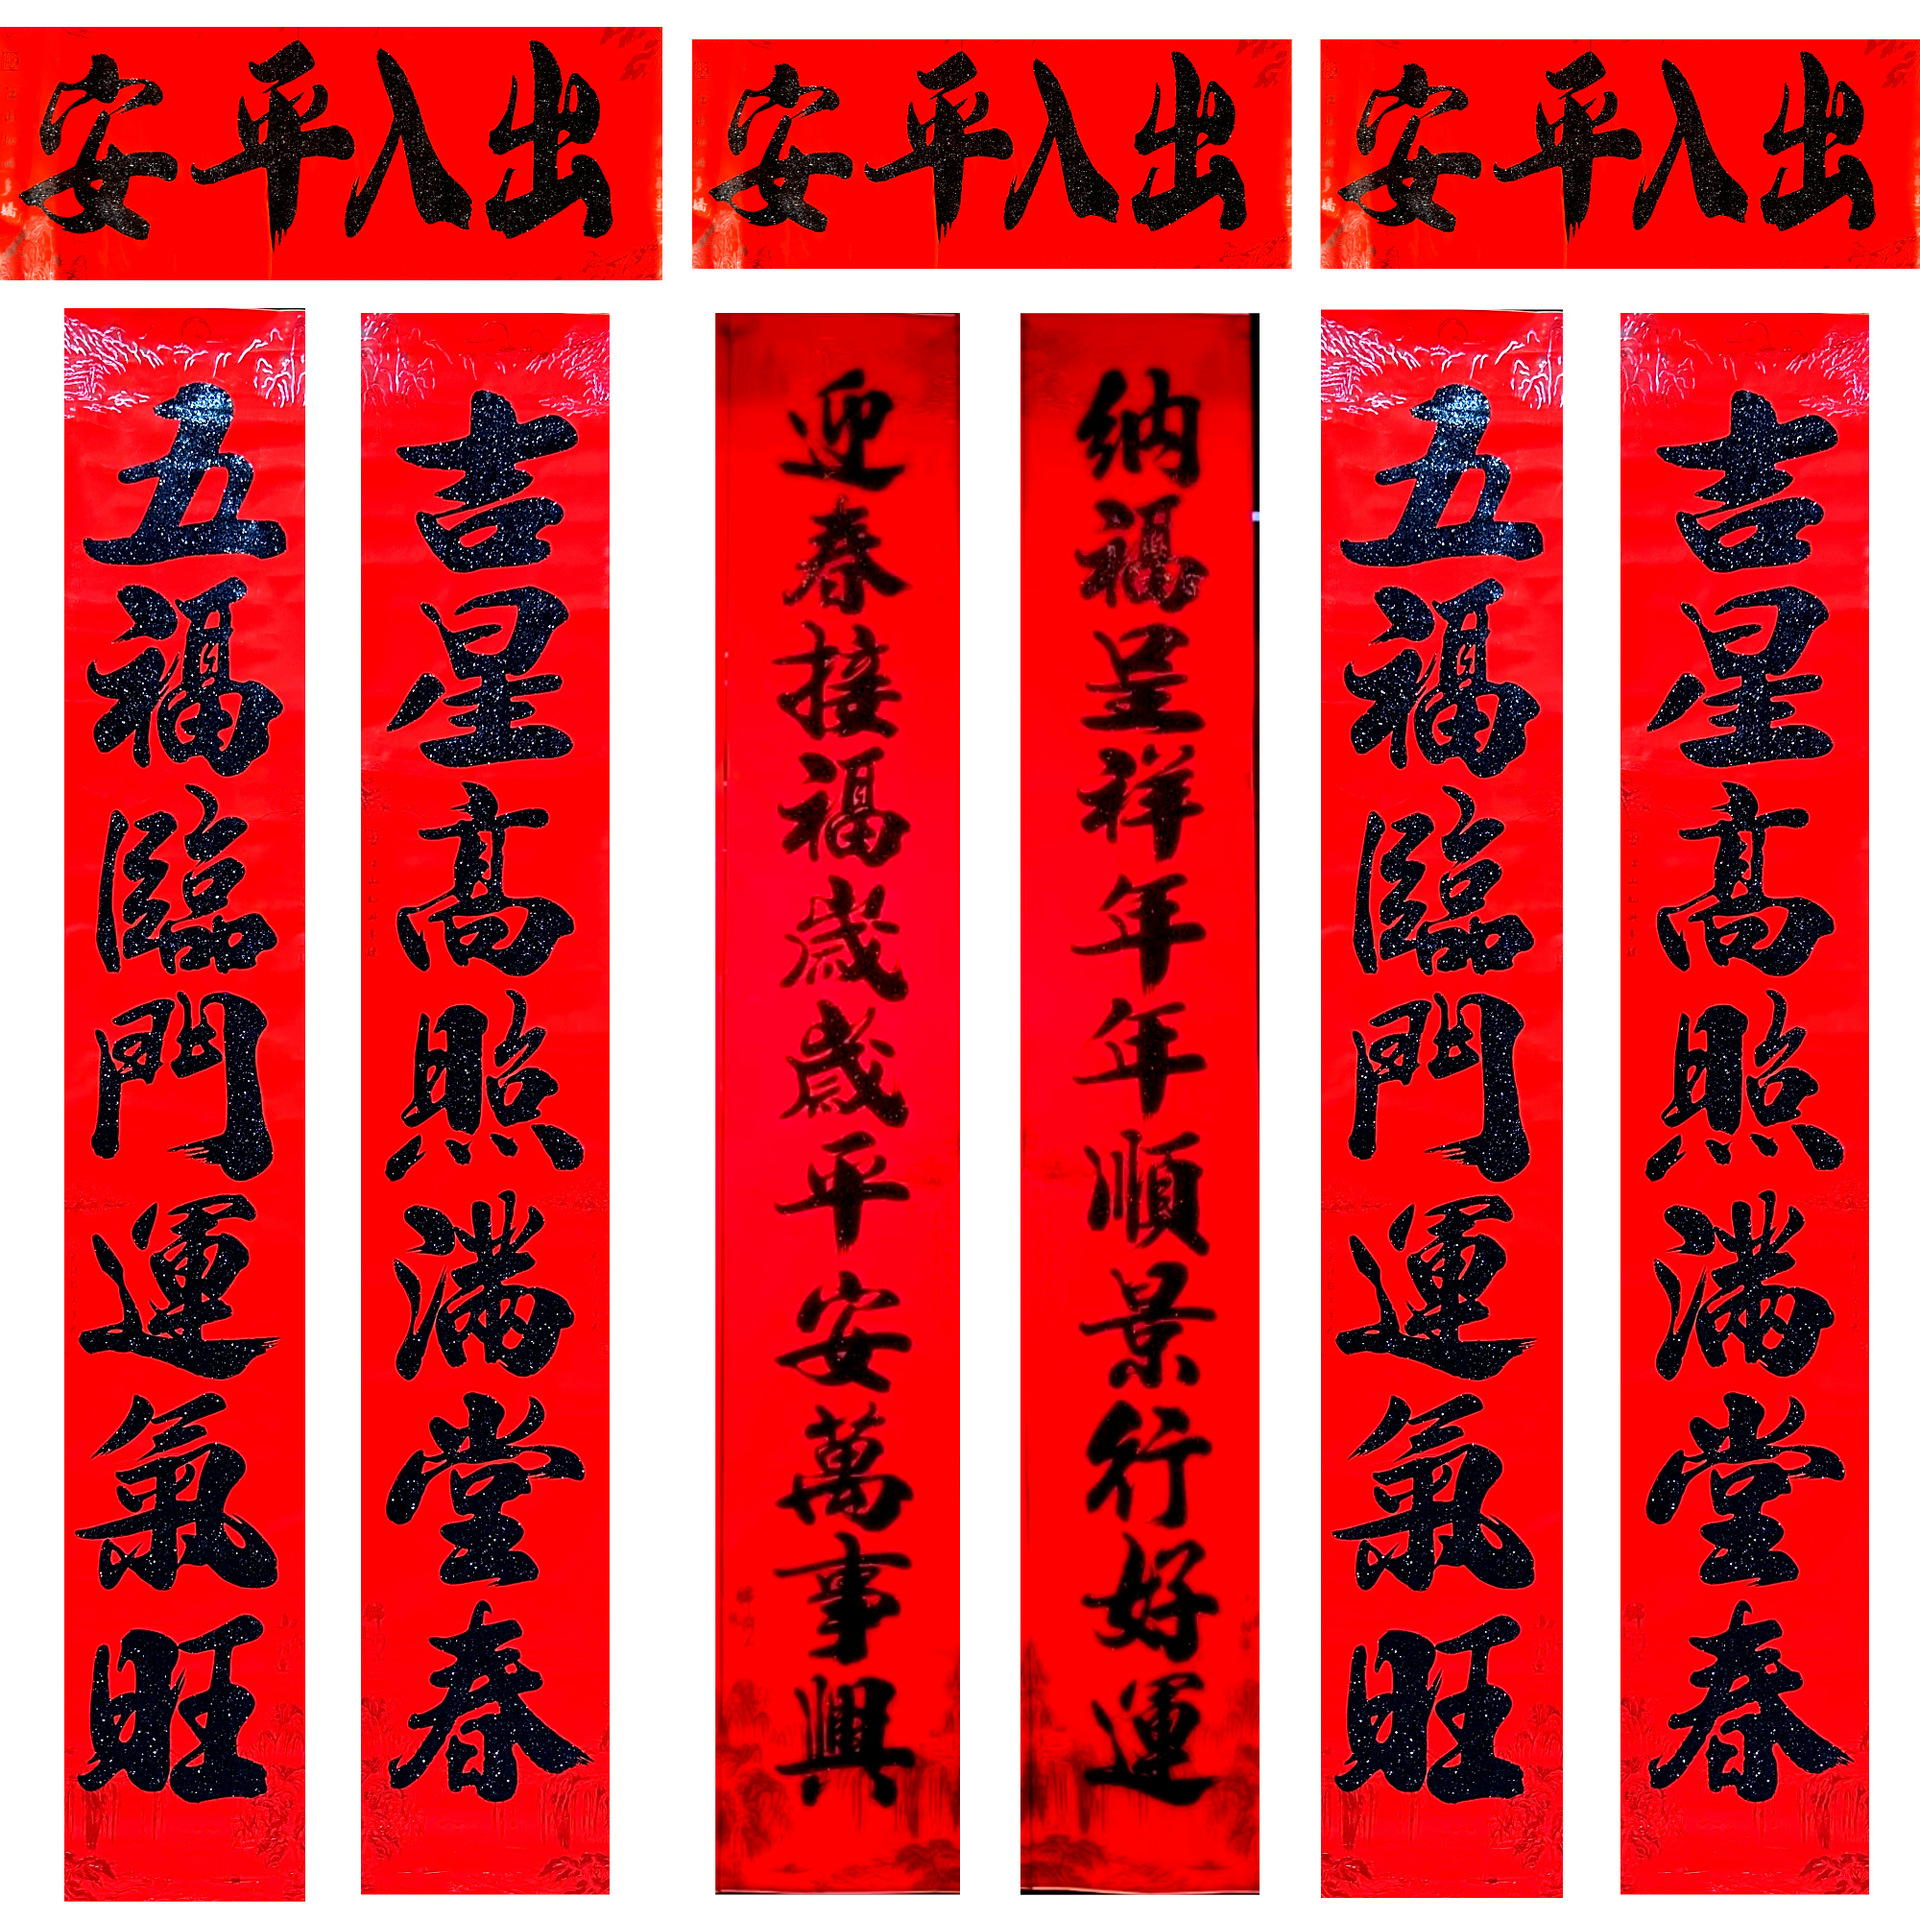 出入平安
吉星高照滿堂春
五福臨門運氣旺
出入平安
納福呈祥年年順景行好運
迎春接福歲歲平安萬事興
出入平安
吉星高照滿堂春
五福臨門運氣旺